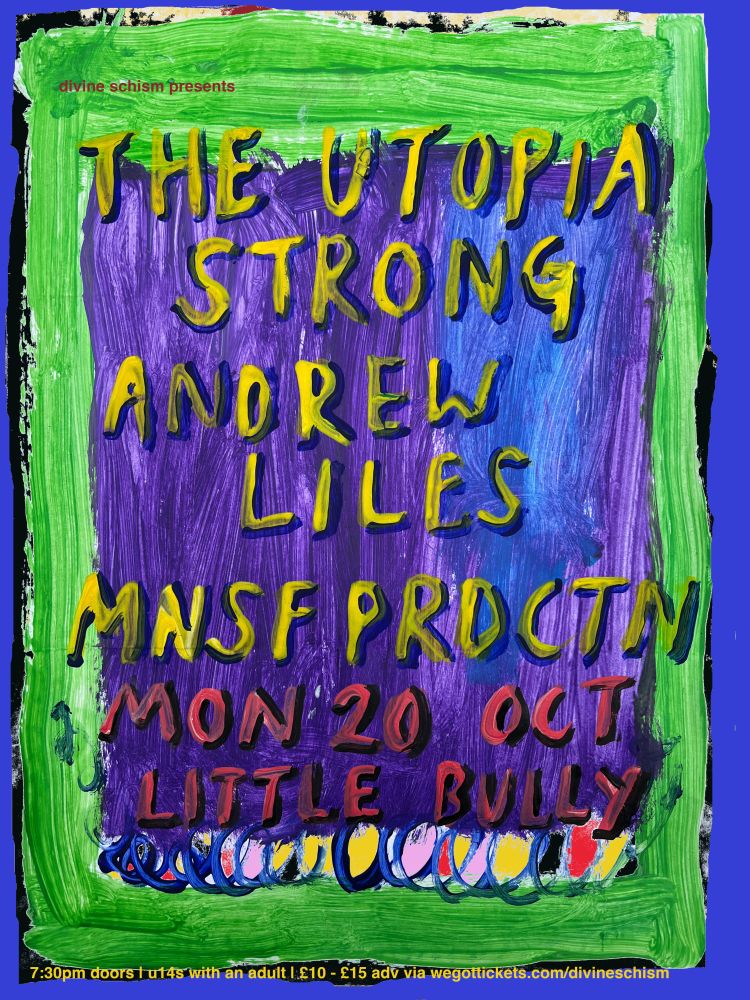 divine schism presents
THE UTOPIA
STRONG
ANDREW
LILES
MNSF PRDCTN
MON 20 OCT
LITTLE BULLY
7:30pm doors | u14s with an adult | £10 - £15 adv via wegottickets.com/divineschism